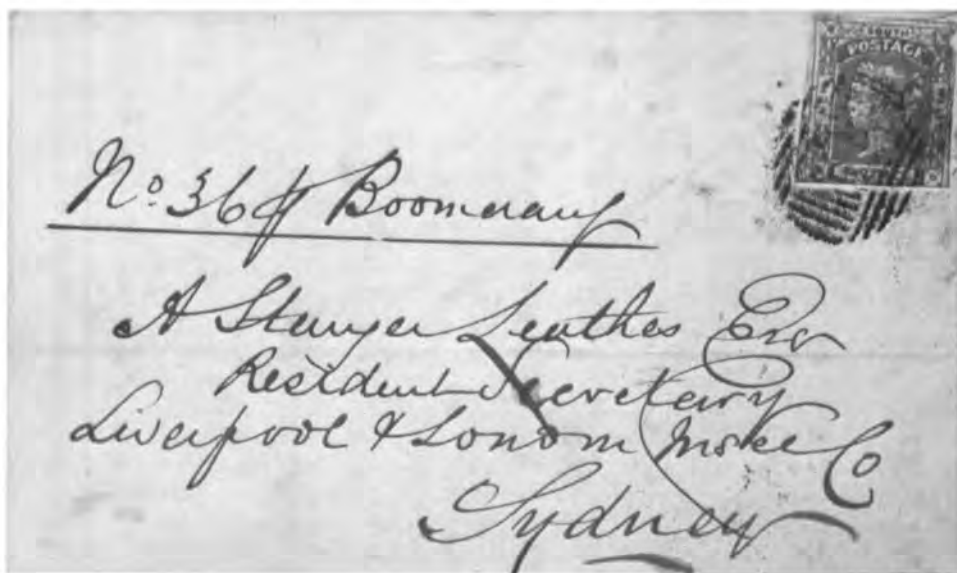 POSTAGE
No. 36 p Boomerang
A Stanger Leathes Esq
Resident Secretary
Liverpool & London Insce Co
Sydney